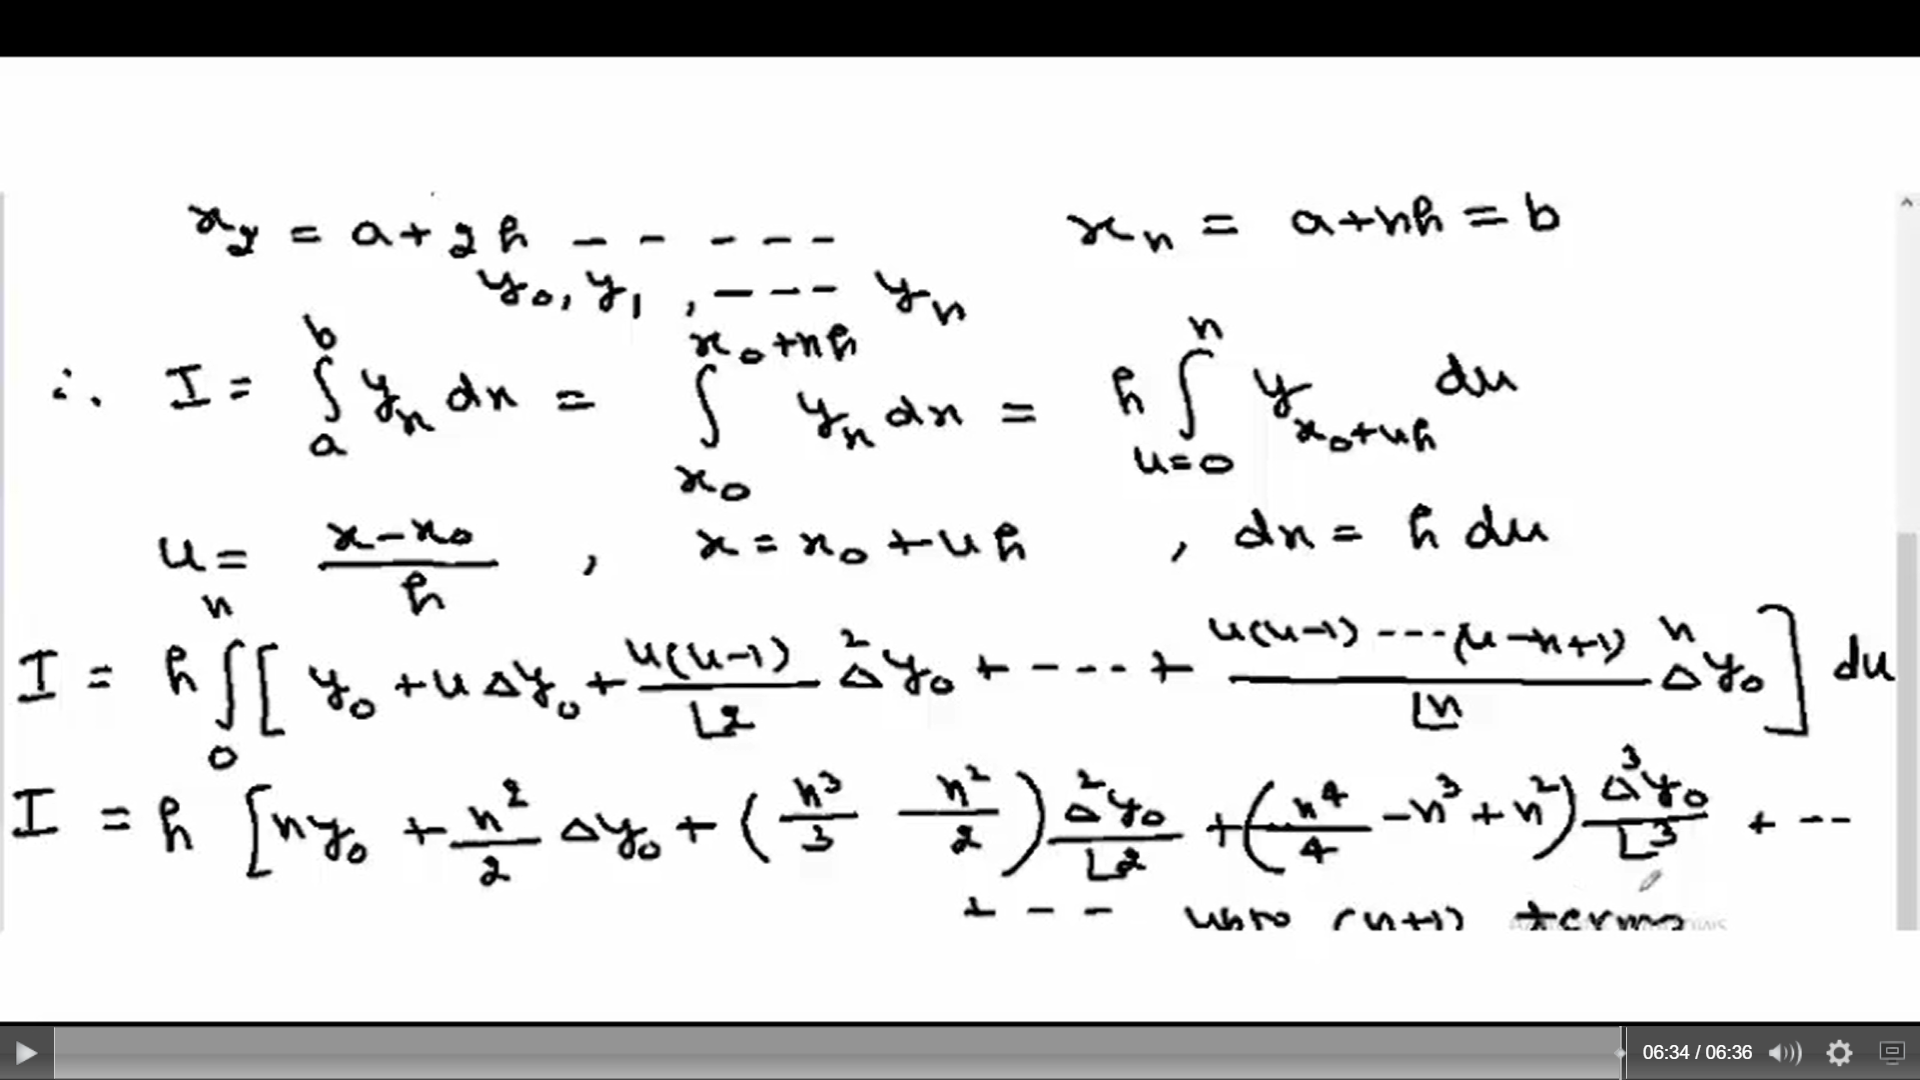 x₂ = a+2h ----- xₙ = a+nh = b
y₀, y₁, ---- yₙ
∴ I = ∫ₐᵇ yₓ dx = ∫_{x₀}^{x₀+nh} yₓ dx = h ∫_{u=0}^{n} y_{x₀+uh} du
u = (x-x₀)/h , x = x₀+uh , dx = h du
I = h ∫₀ⁿ [ y₀ + uΔy₀ + u(u-1)/⌊2 Δ²y₀ + ---- + u(u-1)----(u-n+1)/⌊n Δⁿy₀ ] du
I = h [ ny₀ + n²/2 Δy₀ + (n³/3 - n²/2) Δ²y₀/⌊2 + (n⁴/4 - n³ + n²) Δ³y₀/⌊3 + --
+ -- upto (n+1) terms
06:34 / 06:36